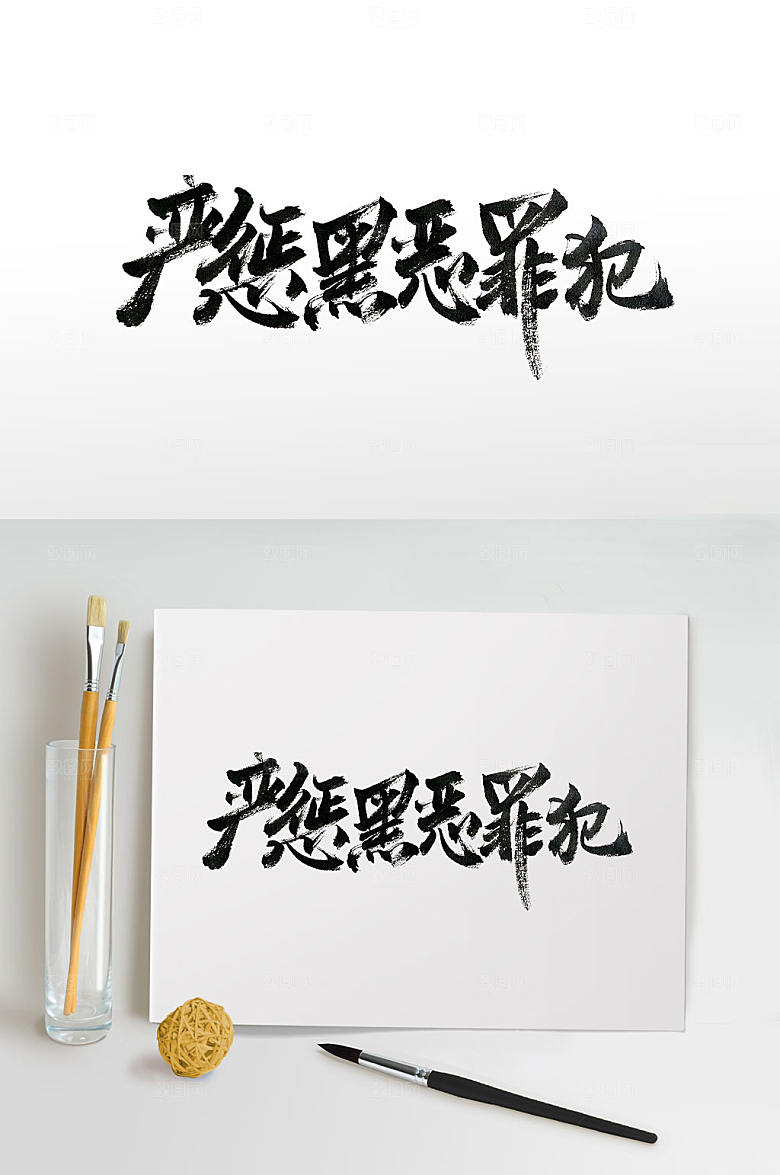 严惩黑恶罪犯
严惩黑恶罪犯